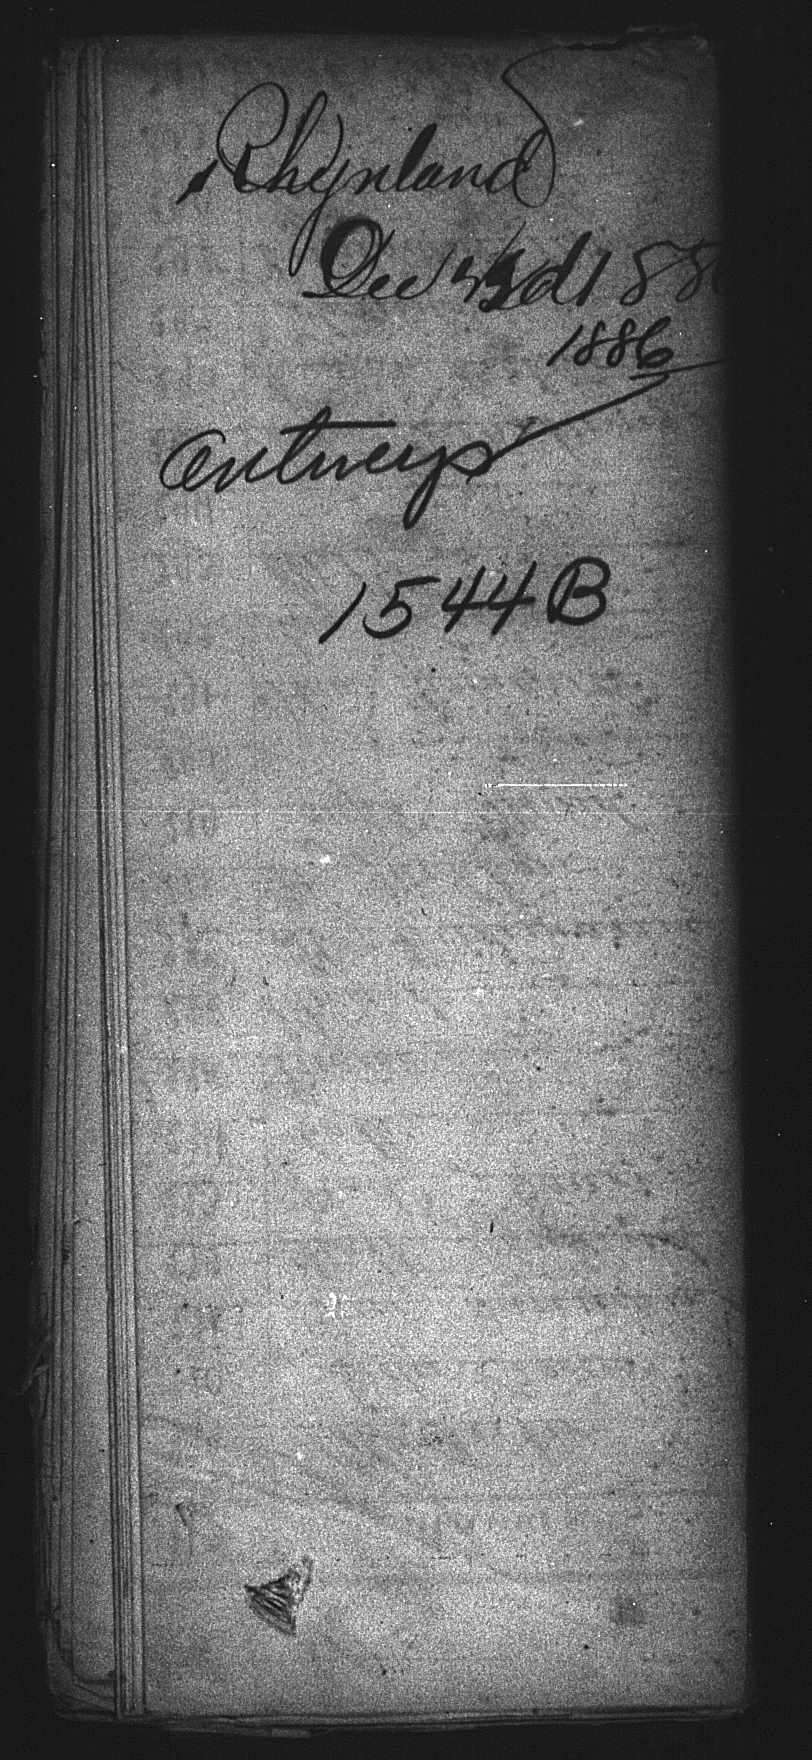 Rhynland
Dec 188
1886
Antwerp
1544 B